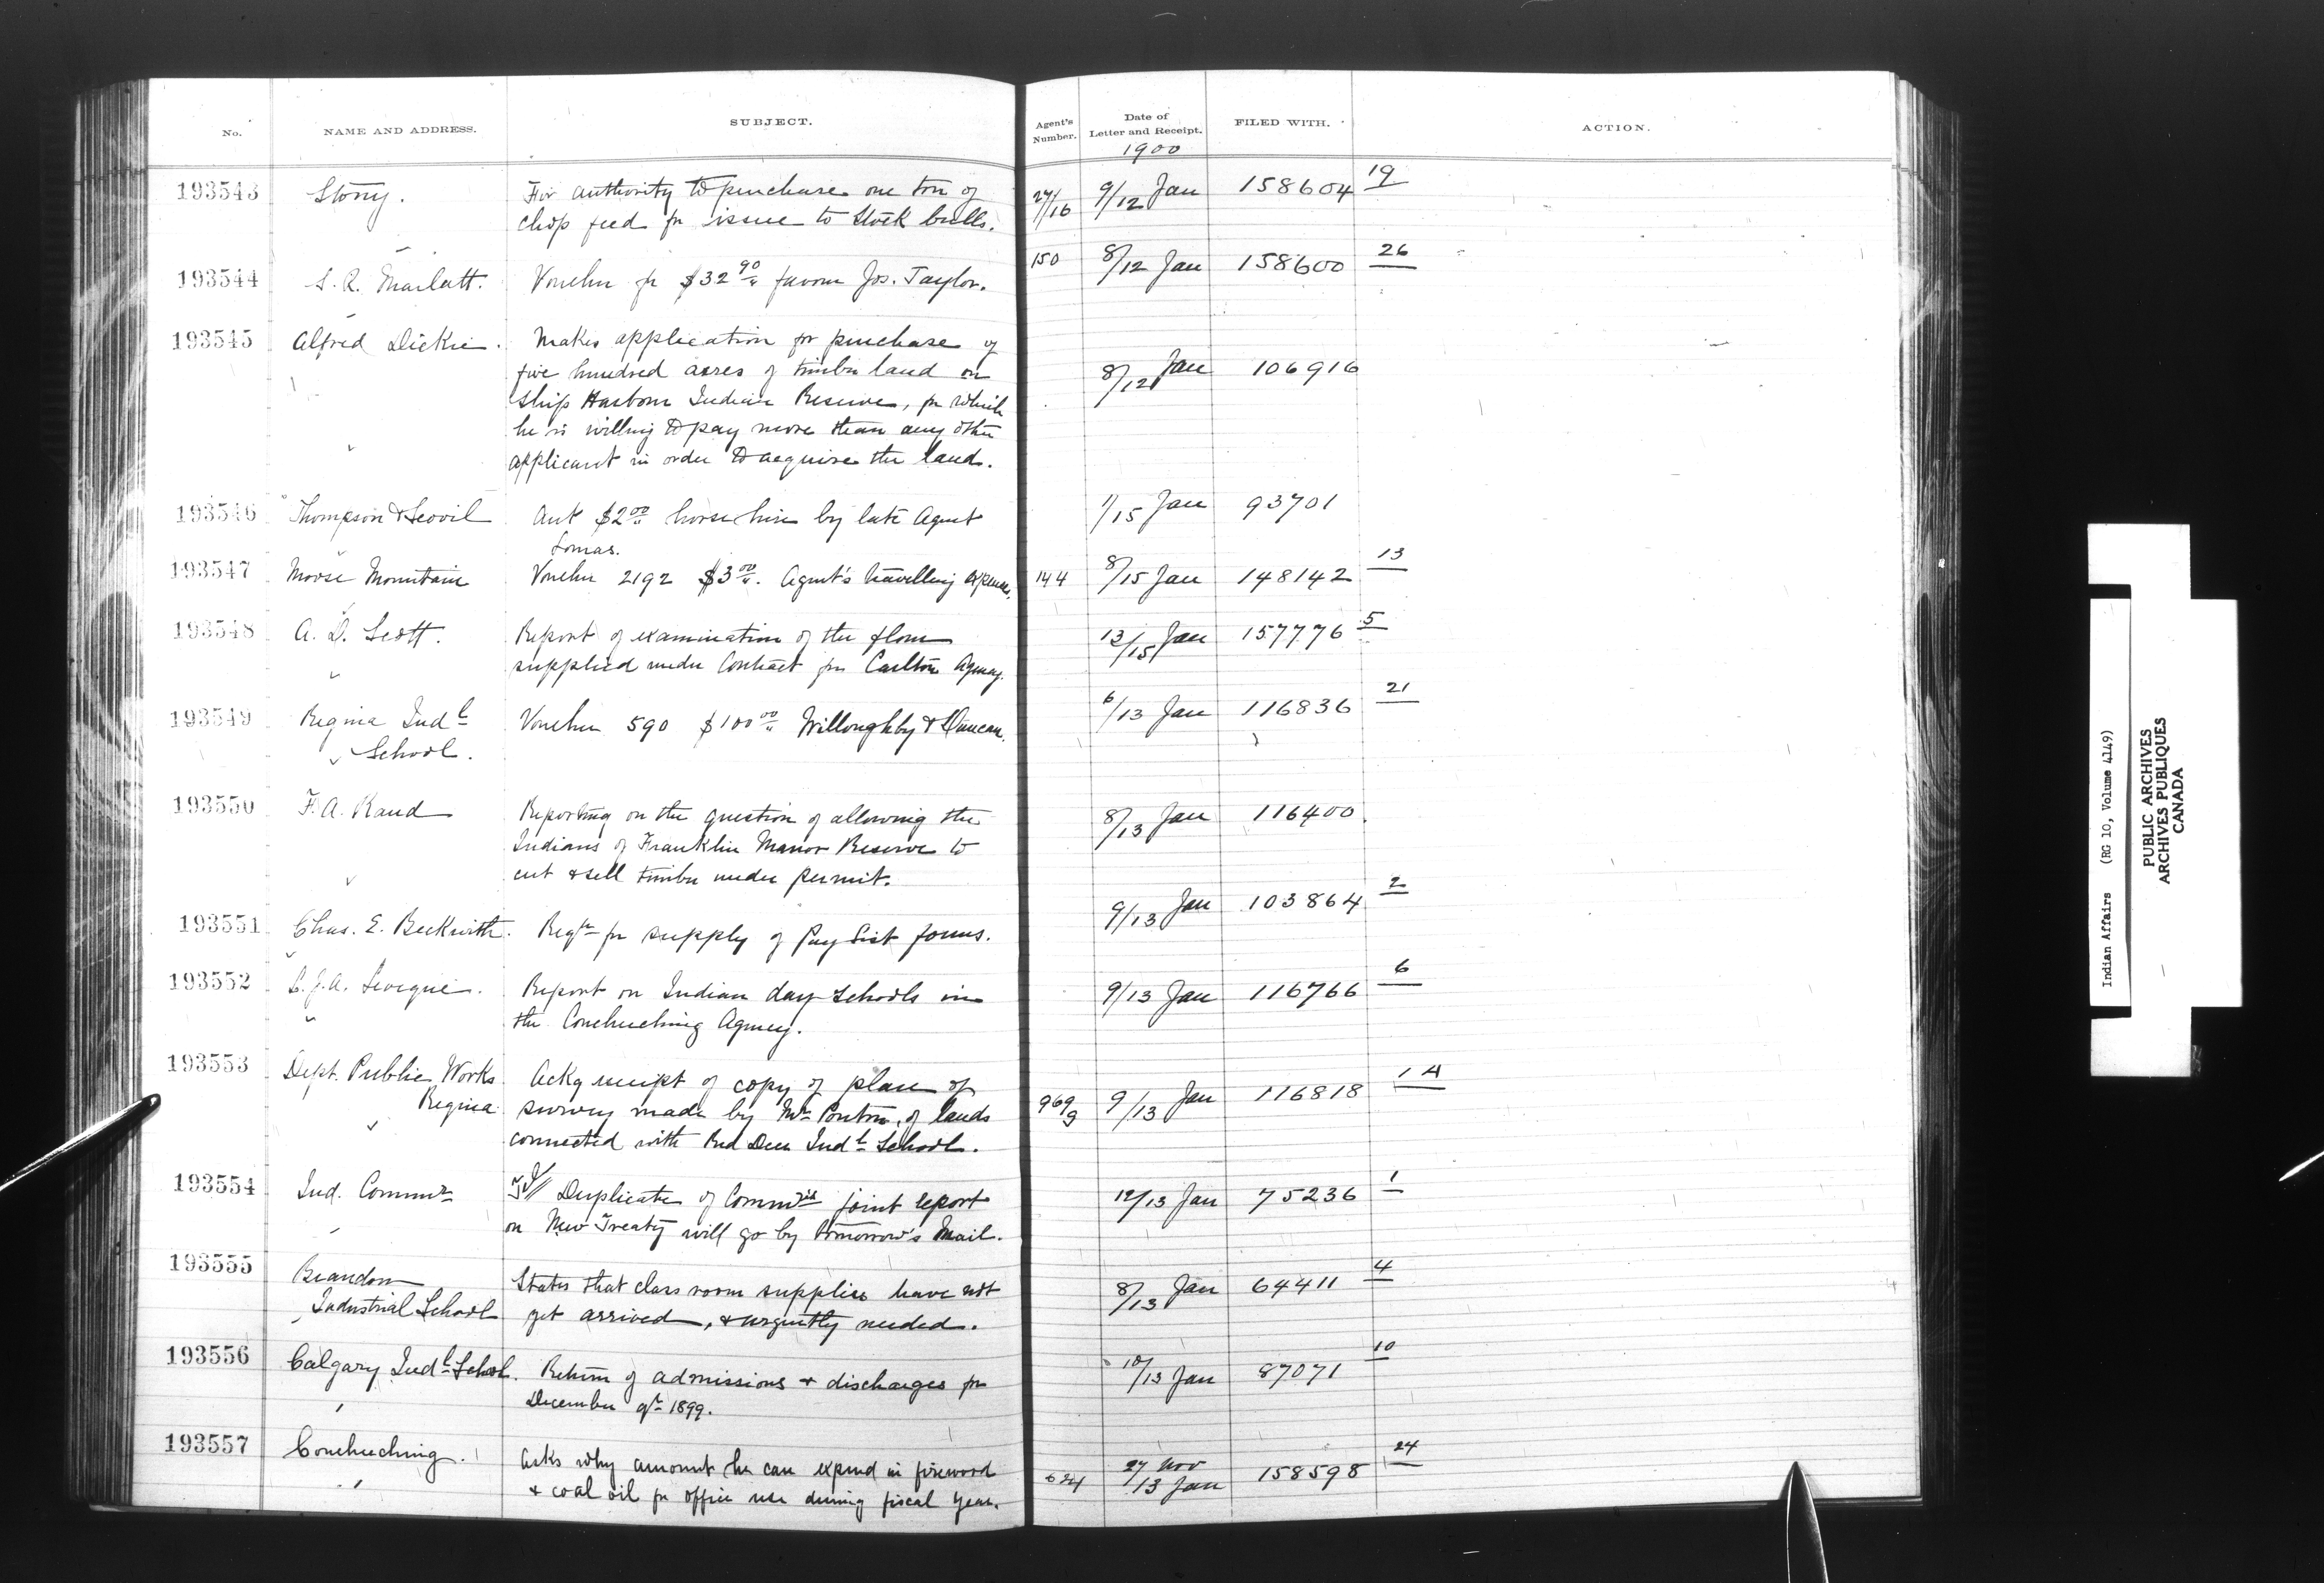 No. NAME AND ADDRESS. SUBJECT. Agent's Number. Date of Letter and Receipt. FILED WITH. ACTION.
1900
193543 Stony. For authority to purchase one ton of 27/16 9/12 Jan 158604 19
chop feed for issue to stock bulls.
193544 S. R. Marlatt. Voucher for $32 90 favour Jos. Taylor. 150 8/12 Jan 158600 26
193545 Alfred Dickie. Makes application for purchase of 8/12 Jan 106916
five hundred acres of timber land on
Ship Harbour Indian Reserve, for which
he is willing to pay more than any other
applicant in order to acquire the land.
193546 Thompson & Scovil $2 00 horse hire by late Agent 1/15 Jan 93701
Lomas.
193547 Moose Mountain Voucher 2192 $3 00. Agent's travelling expenses. 144 8/15 Jan 148142 13
193548 A. D. Scott. Report of examination of the flour 13/15 Jan 157776 5
supplied under Contract for Carlton Agency.
193549 Regina Indl Voucher 590 $100 00 Willoughby & Duncan. 6/13 Jan 116836 21
School.
193550 F. A. Rand Reporting on the question of allowing the 8/13 Jan 116400
Indians of Franklin Manor Reserve to
cut & sell timber under permit.
193551 Chas. E. Beckwith. Reqn for supply of Pay List forms. 9/13 Jan 103864 2
193552 L. J. A. Leveque. Report on Indian day schools in 9/13 Jan 116766 6
the Couchiching Agency.
193553 Dept. Public Works Ackg receipt of copy of plan of 969/9 9/13 Jan 116818 1A
Regina survey made by Mr Ponton, of lands
connected with Red Deer Indl School.
193554 Ind. Commr Duplicate of Commrs joint report 12/13 Jan 75236 1
on New Treaty will go by tomorrow's mail.
193555 Brandon States that class room supplies have not 8/13 Jan 64411 4
Industrial School yet arrived, & urgently needed.
193556 Calgary Indl School. Return of admissions & discharges for 10/13 Jan 87071 10
December qr 1899.
193557 Couchiching. Asks why amount he can expend in firewood 624 27 Nov 158598 24
& coal oil for office use during fiscal year. /13 Jan
Indian Affairs (RG 10, Volume 4149)
PUBLIC ARCHIVES
ARCHIVES PUBLIQUES
CANADA